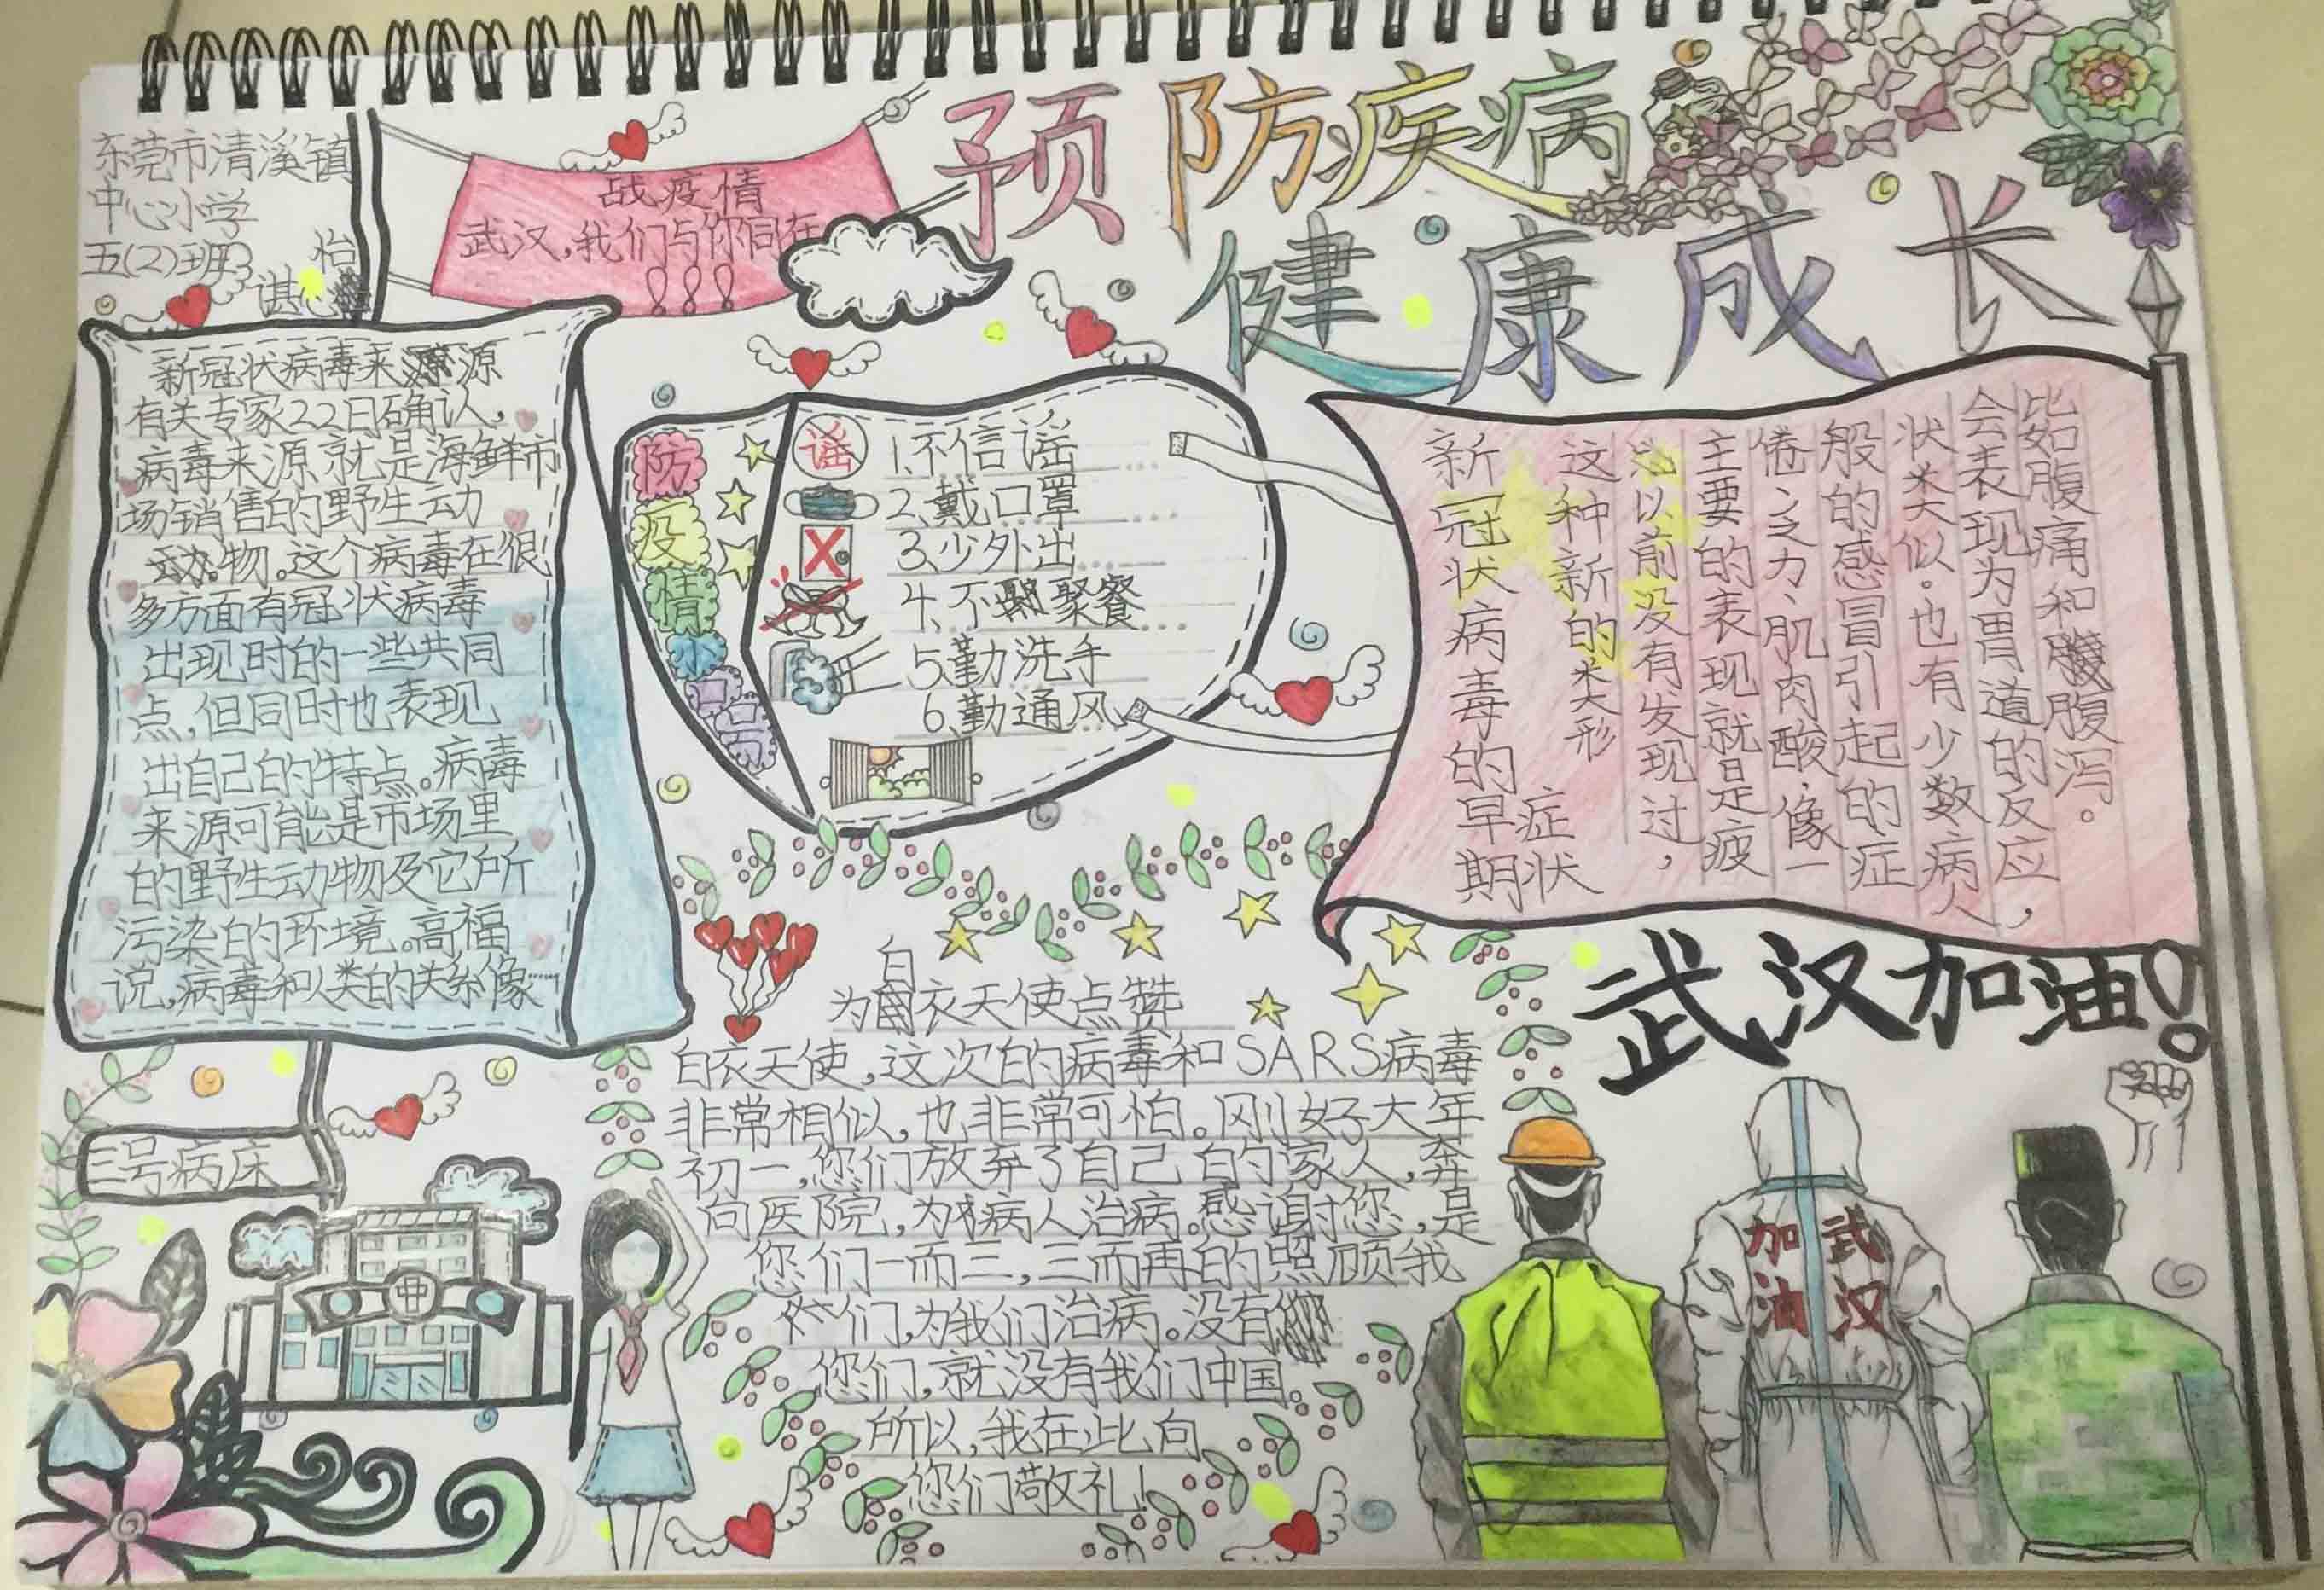 东莞市清溪镇
中心小学
五(2)班
谌心怡
战疫情
武汉,我们与你同在
预防疾病
健康成长
新冠状病毒来源
有关专家22日确认,
病毒来源就是海鲜市
场销售的野生动
动物。这个病毒在很
多方面有冠状病毒
出现时的一些共同
点,但同时也表现
出自己的特点。病毒
来源可能是市场里
的野生动物及它所
污染的环境。高福
说,病毒和人类的关系像……
防疫情小
谣
1.不信谣
2.戴口罩
3.少外出
4.不聚餐
5.勤洗手
6.勤通风
新冠状病毒的早期
症状
这种新的类形
以前没有发现过,
主要的表现就是疲
倦乏力、肌肉酸,像一
般的感冒引起的症
状类似。也有少数病人
会表现为胃道的反应,
比如腹痛和腹泻。
武汉加油!
三号病床
为白衣天使点赞
白衣天使,这次的病毒和SARS病毒
非常相似,也非常可怕。刚好大年
初一,您们放弃了自己的家人,奔
向医院,为病人治病。感谢您,是
您们一而三,三而再的照顾我
们,为我们治病。没有
您们,就没有我们中国。
所以,我在此向
您们敬礼!
武汉
加油